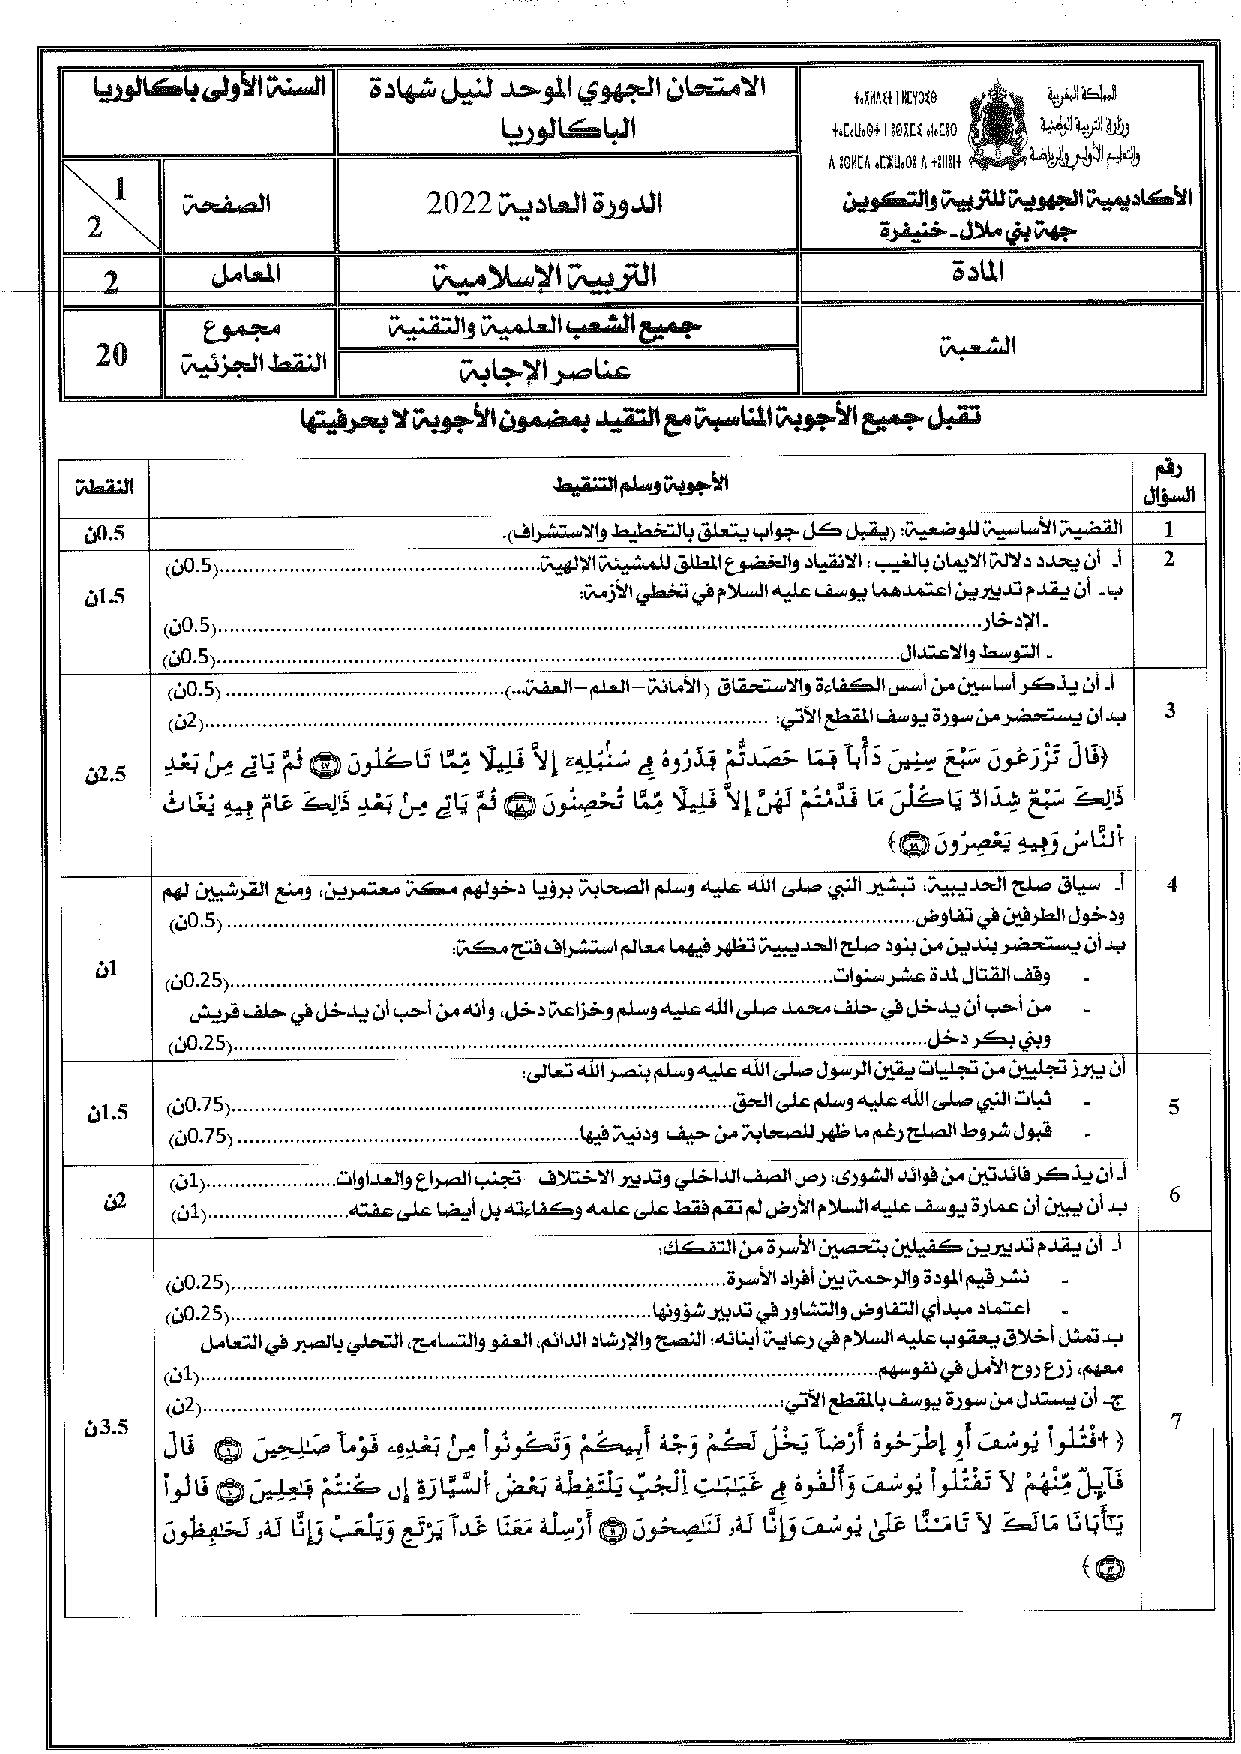 المملكة المغربية
وزارة التربية الوطنية
والتعليم الأولي والرياضة
ⵜⴰⴳⵍⴷⵉⵜ ⵏ ⵍⵎⵖⵔⵉⴱ
الأكاديمية الجهوية للتربية والتكوين
جهة بني ملال - خنيفرة
الامتحان الجهوي الموحد لنيل شهادة
الباكالوريا
السنة الأولى باكالوريا
الدورة العادية 2022
الصفحة
1
2
المادة
التربية الإسلامية
المعامل
2
الشعبة
جميع الشعب العلمية والتقنية
عناصر الإجابة
مجموع
النقط الجزئية
20
تقبل جميع الأجوبة المناسبة مع التقيد بمضمون الأجوبة لا بحرفيتها
رقم
السؤال
الأجوبة وسلم التنقيط
النقطة
1
القضية الأساسية للوضعية: (يقبل كل جواب يتعلق بالتخطيط والاستشراف).
0.5ن
2
أ- أن يحدد دلالة الايمان بالغيب : الانقياد والخضوع المطلق للمشيئة الالهية............(0.5ن)
ب- أن يقدم تدبيرين اعتمدهما يوسف عليه السلام في تخطي الأزمة:
- الإدخار............(0.5ن)
- التوسط والاعتدال............(0.5ن)
1.5ن
3
أ- أن يذكر أساسين من أسس الكفاءة والاستحقاق (الأمانة –العلم –العفة...)............(0.5ن)
ب- ان يستحضر من سورة يوسف المقطع الآتي: ............(2ن)
﴿قَالَ تَزْرَعُونَ سَبْعَ سِنِينَ دَأْباً فَمَا حَصَدتُّمْ فَذَرُوهُ فِے سُنۢبُلِهِۦٓ إِلَّا قَلِيلًا مِّمَّا تَاكُلُونَ ﴿٤٧﴾ ثُمَّ يَاتِے مِنۢ بَعْدِ
ذَٰلِكَ سَبْعٌ شِدَادٌ يَاكُلْنَ مَا قَدَّمْتُمْ لَهُنَّ إِلَّا قَلِيلًا مِّمَّا تُحْصِنُونَ ﴿٤٨﴾ ثُمَّ يَاتِے مِنۢ بَعْدِ ذَٰلِكَ عَامٌ فِيهِ يُغَاثُ
اُلنَّاسُ وَفِيهِ يَعْصِرُونَ ﴿٤٩﴾﴾
2.5ن
4
أ- سياق صلح الحديبية، تبشير النبي صلى الله عليه وسلم الصحابة برؤيا دخولهم مكة معتمرين، ومنع القرشيين لهم
ودخول الطرفين في تفاوض............(0.5ن)
ب- أن يستحضر بندين من بنود صلح الحديبية تظهر فيهما معالم استشراف فتح مكة:
- وقف القتال لمدة عشر سنوات............(0.25ن)
- من أحب أن يدخل في حلف محمد صلى الله عليه وسلم وخزاعة دخل، وأنه من أحب أن يدخل في حلف قريش
وبني بكر دخل............(0.25ن)
1ن
5
أن يبرز تجليين من تجليات يقين الرسول صلى الله عليه وسلم بنصر الله تعالى:
- ثبات النبي صلى الله عليه وسلم على الحق............(0.75ن)
- قبول شروط الصلح رغم ما ظهر للصحابة من حيف ودنية فيها............(0.75ن)
1.5ن
6
أ- أن يذكر فائدتين من فوائد الشورى: رص الصف الداخلي وتدبير الاختلاف تجنب الصراع والعداوات............(1ن)
ب- أن يبين أن عمارة يوسف عليه السلام الأرض لم تقم فقط على علمه وكفاءته بل أيضا على عفته............(1ن)
2ن
7
أ- أن يقدم تدبيرين كفيلين بتحصين الأسرة من التفكك:
- نشر قيم المودة والرحمة بين أفراد الأسرة............(0.25ن)
- اعتماد مبدأي التفاوض والتشاور في تدبير شؤونها............(0.25ن)
ب- تمثل أخلاق يعقوب عليه السلام في رعاية أبنائه: النصح والإرشاد الدائم، العفو والتسامح، التحلي بالصبر في التعامل
معهم، زرع روح الأمل في نفوسهم............(1ن)
ج- أن يستدل من سورة يوسف بالمقطع الآتي:............(2ن)
﴿ اَقْتُلُواْ يُوسُفَ أَوِ اِطْرَحُوهُ أَرْضاً يَخْلُ لَكُمْ وَجْهُ أَبِيكُمْ وَتَكُونُواْ مِنۢ بَعْدِهِۦ قَوْماً صَٰلِحِينَ ﴿٩﴾ قَالَ
قَآئِلٌ مِّنْهُمْ لَا تَقْتُلُواْ يُوسُفَ وَأَلْقُوهُ فِے غَيَٰبَٰتِ اِلْجُبِّ يَلْتَقِطْهُ بَعْضُ اُلسَّيَّارَةِ إِن كُنتُمْ فَٰعِلِينَ ﴿١٠﴾ قَالُواْ
يَٰٓأَبَانَا مَالَكَ لَا تَامَ۬نَّا عَلَىٰ يُوسُفَ وَإِنَّا لَهُۥ لَنَٰصِحُونَ ﴿١١﴾ أَرْسِلْهُ مَعَنَا غَداً يَرْتَعِ وَيَلْعَبْ وَإِنَّا لَهُۥ لَحَٰفِظُونَ
﴿١٢﴾ ﴾
3.5ن